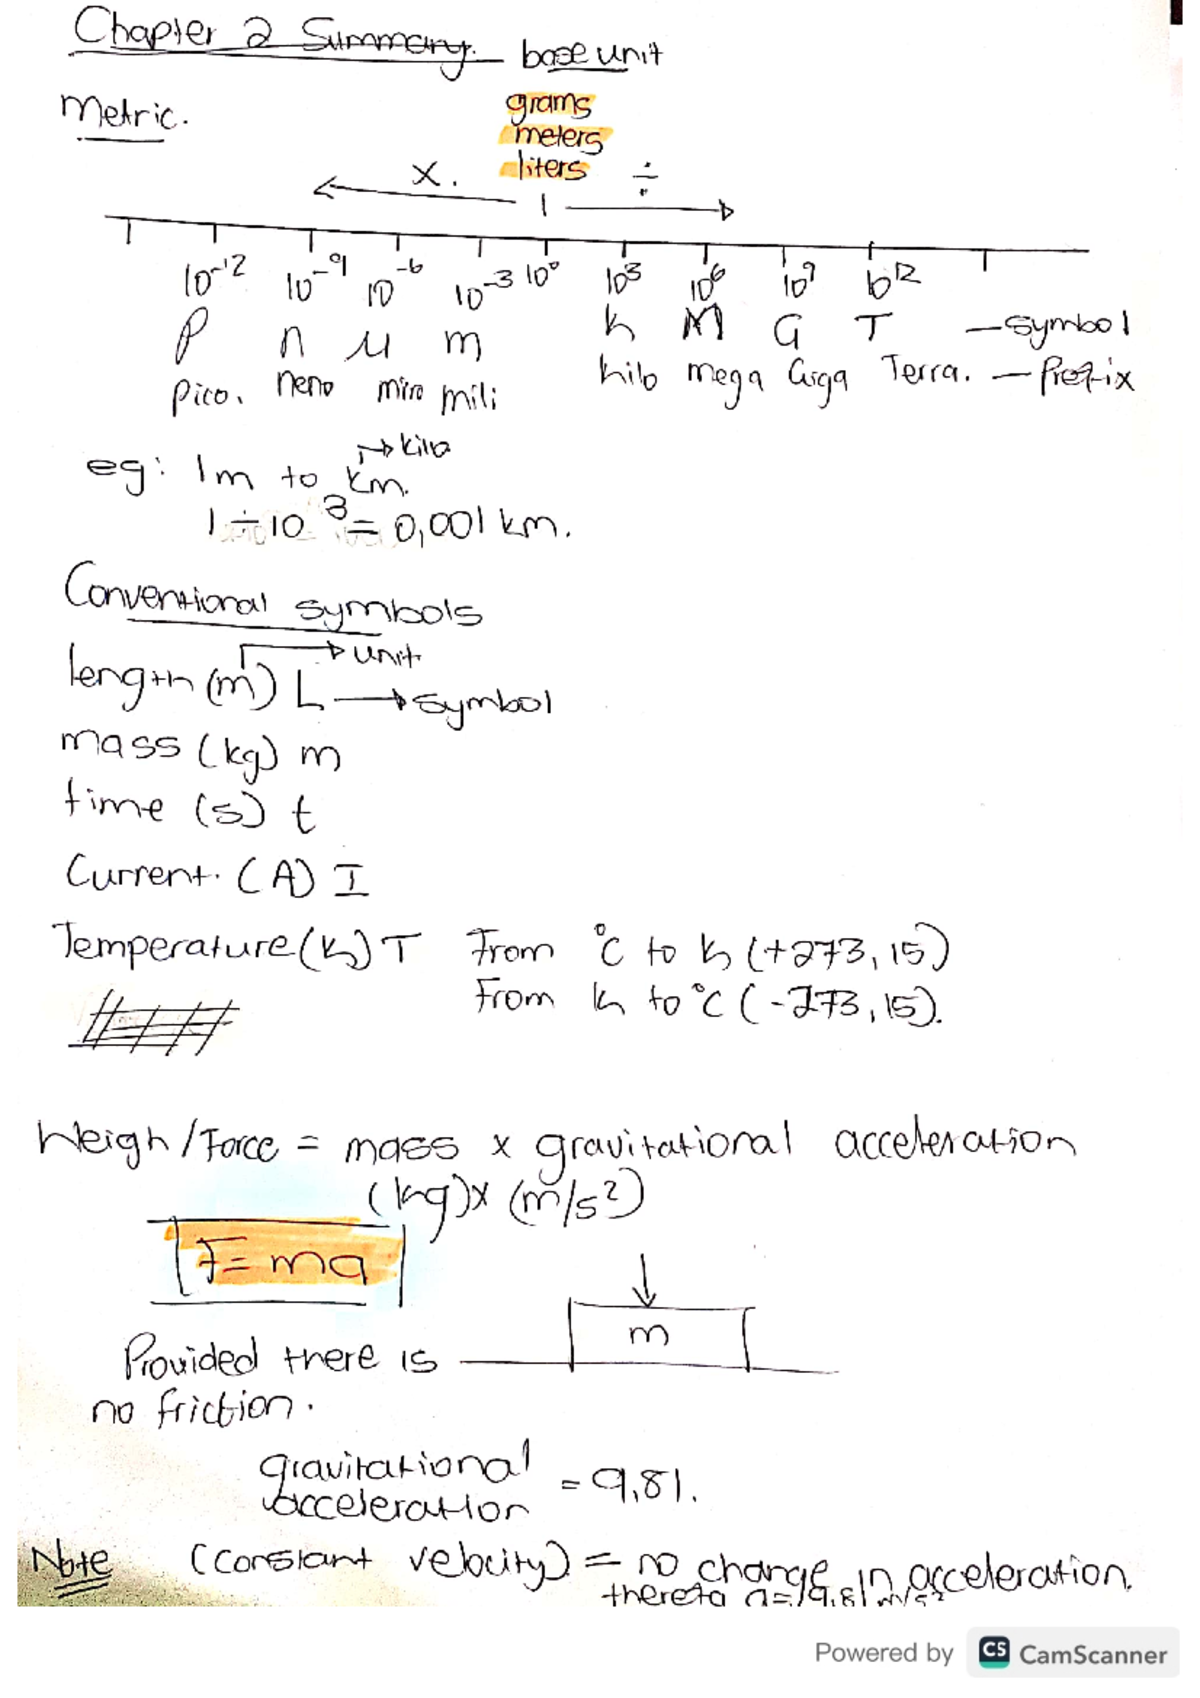 Chapter 2 Summary.
base unit
Metric.
grams
meters
liters
X.
÷
1
10⁻¹² 10⁻⁹ 10⁻⁶ 10⁻³ 10⁰ 10³ 10⁶ 10⁹ 10¹²
P n μ m k M G T — Symbol
Pico. neno miro mili kilo mega Giga Terra. — Prefix
→ kilo
eg: 1m to km.
1 ÷ 10³ = 0,001 km.
Conventional symbols
→ unit
length (m) L → symbol
mass (kg) m
time (s) t
Current. (A) I
Temperature (k) T From °C to k (+273,15)
From k to °C (-273,15).
Weigh / Force = mass x gravitational acceleration
(kg) x (m/s²)
F = ma
m
Provided there is
no friction.
gravitational
acceleration = 9,81.
Note (constant velocity) = no change in acceleration.
a = 9.81 m/s²
Powered by CS CamScanner